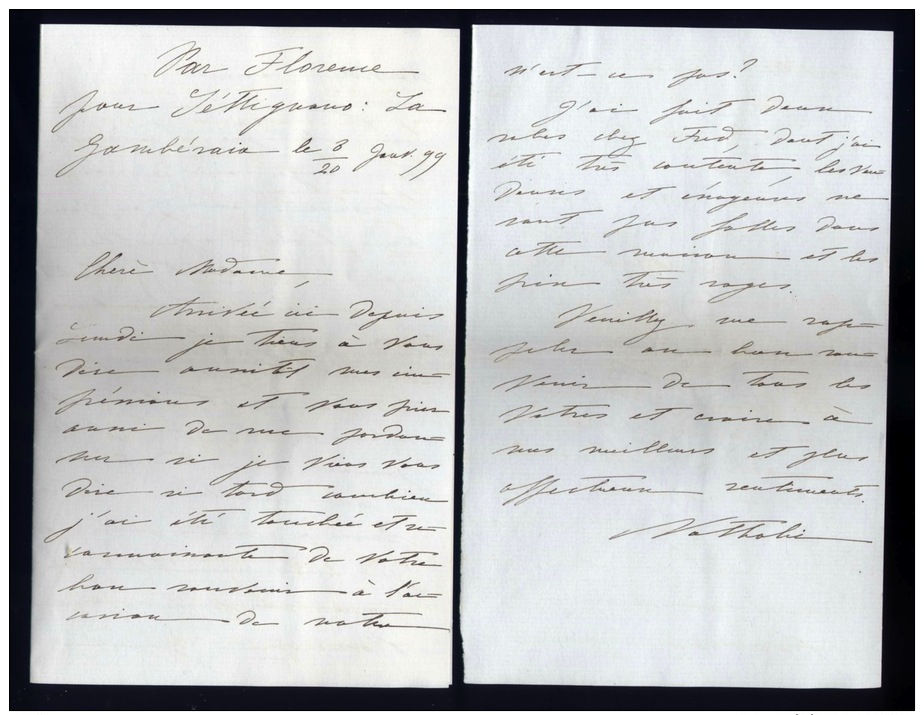 Par Florence
pour Séttignano: La
Gambéraia le 8/20 Janv. 99
Chère Madame,
Arrivée ici depuis
Lundi je tiens à vous
dire aussitôt mes im-
préssions et vous prier
aussi de me pardon-
ner si je viens vous
dire si tard combien
j'ai été touchée et re-
connaissante de votre
bon souvenir à l'oc-
casion de notre
n'est-ce pas?
J'ai fait deux
robes chez Fred, dont j'ai
été très contente, les ven-
deuses et éssayeuses ne
sont pas sottes dans
cette maison et les
prix très sages.
Veuillez me rap-
peler au bon sou-
venir de tous les
vôtres et croire à
mes meilleurs et plus
affectueux sentiments.
Nathalie